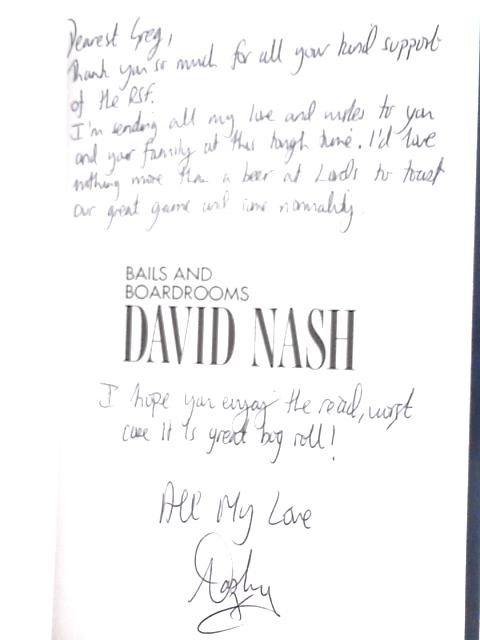 Dearest Greg,
Thank you so much for all your kind support
of the RSF.
I'm sending all my love and wishes to you
and your family at this tough time. I'd love
nothing more than a beer at Lords to toast
our great game and some normality.
BAILS AND
BOARDROOMS
DAVID NASH
I hope you enjoy the read, worst
case it is great bog roll!
All My Love